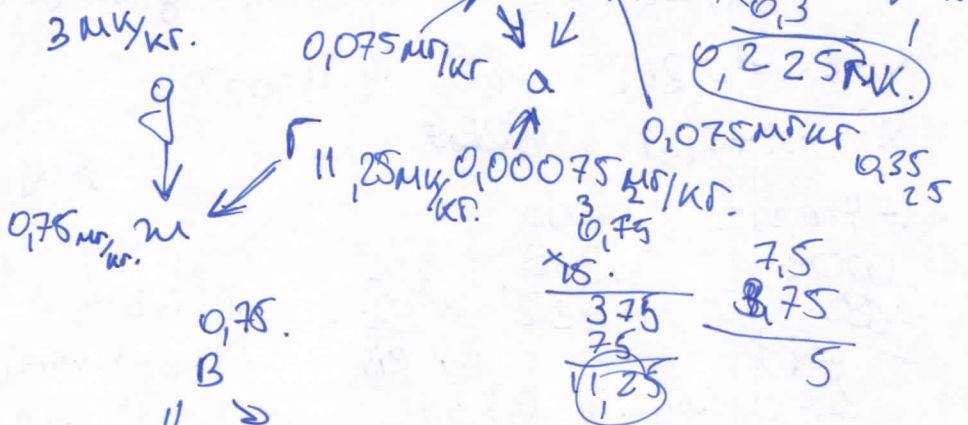 3 мк/кг.
0,075 мг/кг
а
0,3
0,225 мк.
0,075 мг кг
0,35
25
г
11,25 мк/кг.
0,00075 мг/кг.
0,75 мг/кг.
3 2
0,75
×15.
375
75
11,25
7,5
3,75
5
0,75.
В